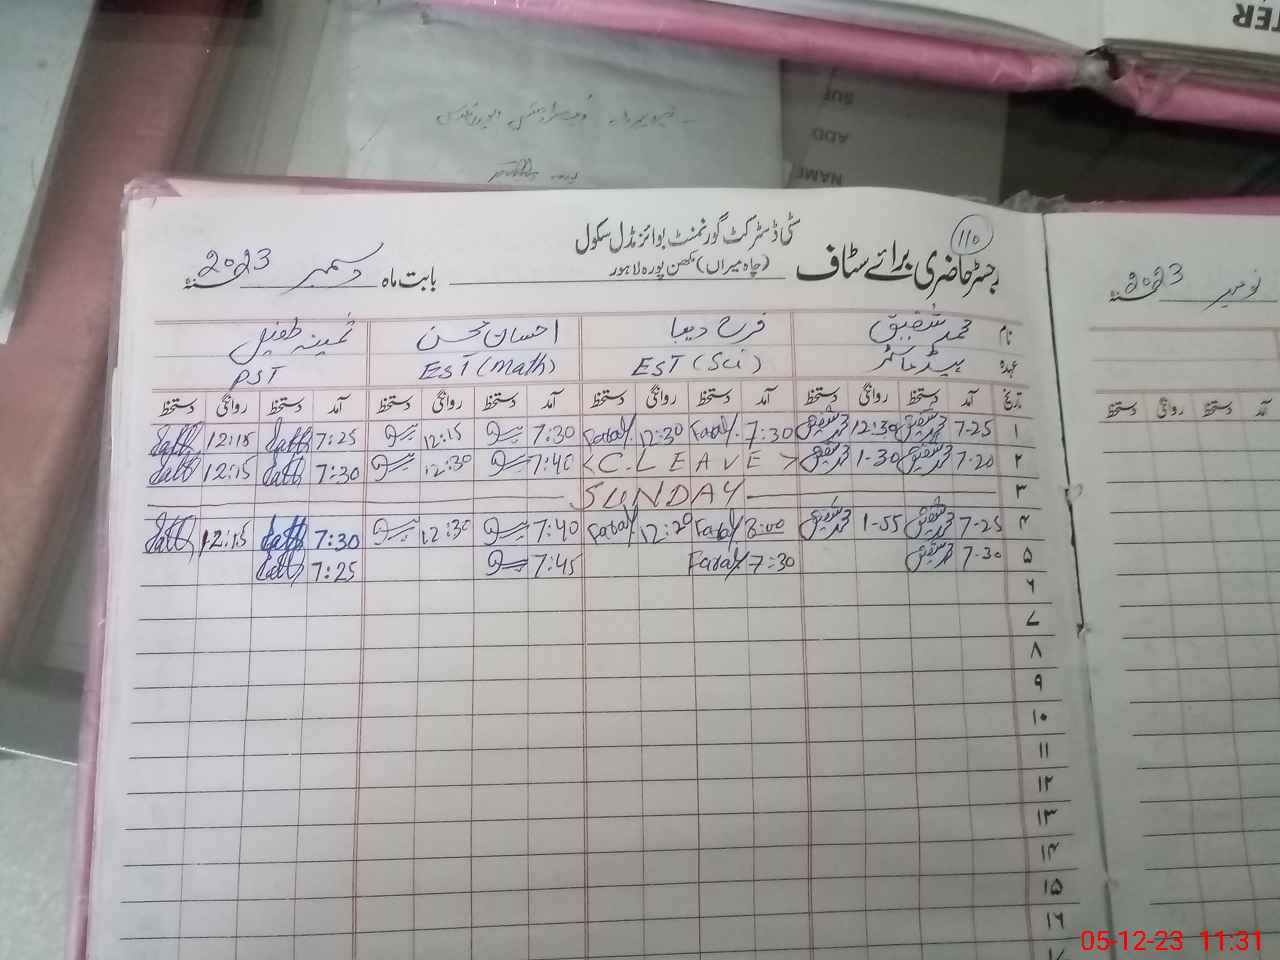 TER
SUT
ADD
NAME
110
سٹی ڈسٹرکٹ گورنمنٹ بوائز مڈل سکول
رجسٹر حاضری برائے سٹاف (چاہ میراں) مکھن پورہ لاہور بابت ماہ دسمبر 2023 سنہ
نومبر 2023 سنہ
نام محمد شفیق فرح دیبا احسان محسن ثمینہ طفیل
عہدہ ہیڈ ماسٹر EST (Sci) EST (Math) PST
تاریخ آمد دستخط روانگی دستخط آمد دستخط روانگی دستخط آمد دستخط روانگی دستخط آمد دستخط روانگی دستخط
آمد دستخط روانگی دستخط
۱ 7-25 محمد شفیق 12:30 محمد شفیق 7:30 Farah 12:30 Farah 7:30 12:15 7:25 12:15
۲ 7-20 محمد شفیق 1-30 محمد شفیق < C. L E A V E > 7:40 12:30 7:30 12:15
۳ SUNDAY
۴ 7-25 محمد شفیق 1-55 محمد شفیق 8:00 Farah 12:20 Farah 7:40 12:30 7:30 12:15
۵ 7-30 محمد شفیق 7:30 Farah 7:45 7:25
۶
۷
۸
۹
۱۰
۱۱
۱۲
۱۳
۱۴
۱۵
۱۶
05-12-23 11:31